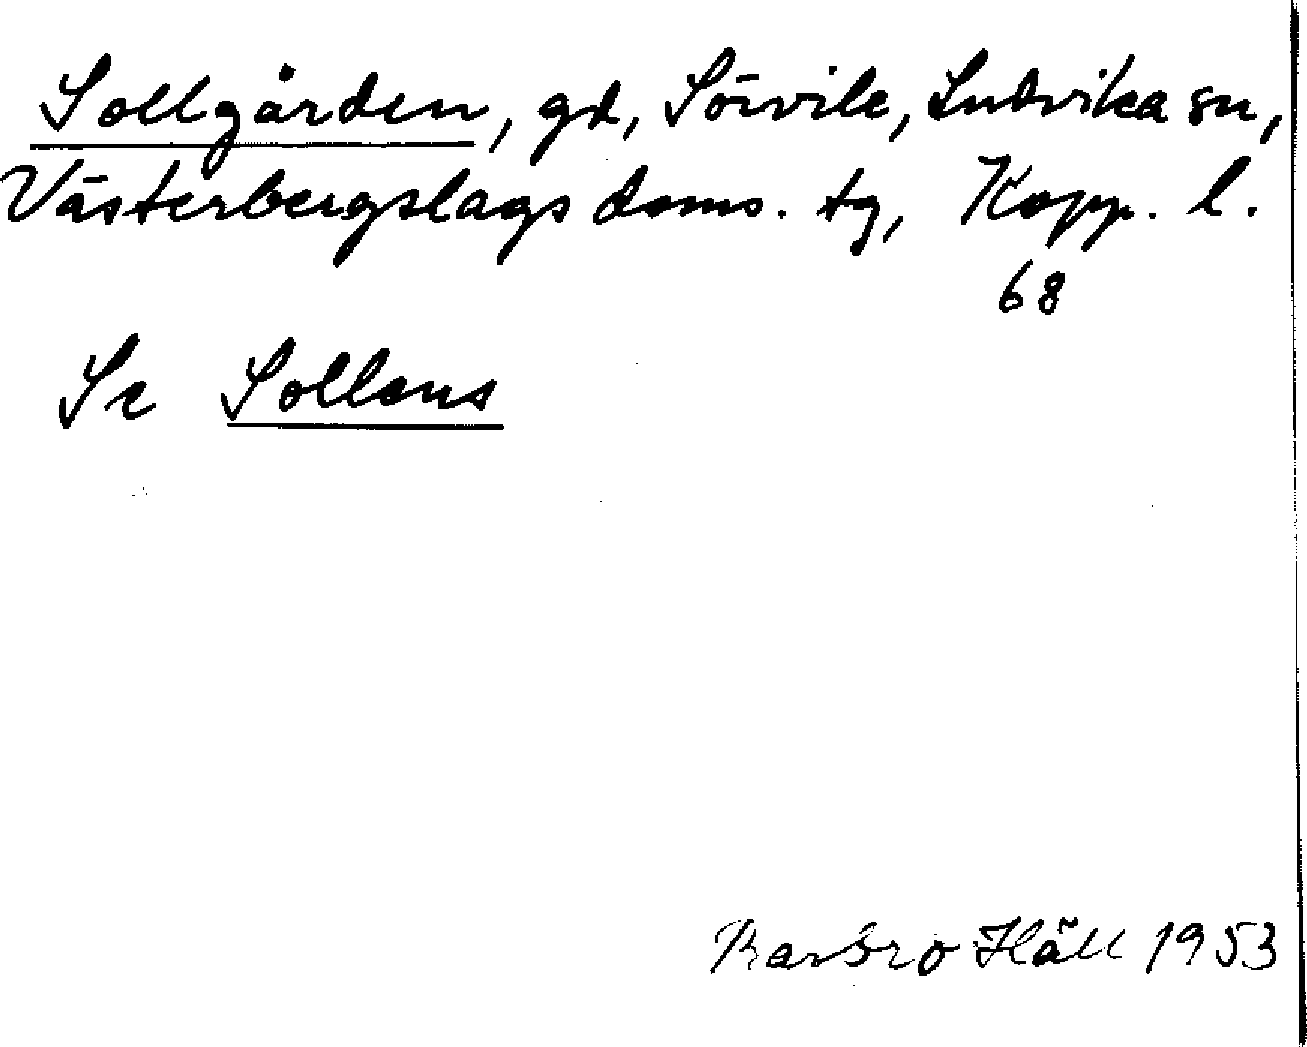 Sollgården, gd, Sörvik, Ludvika sn,
Västerbergslags doms. tg, Kopp. l.
68
Se Sollens
Barbro Häll 1953